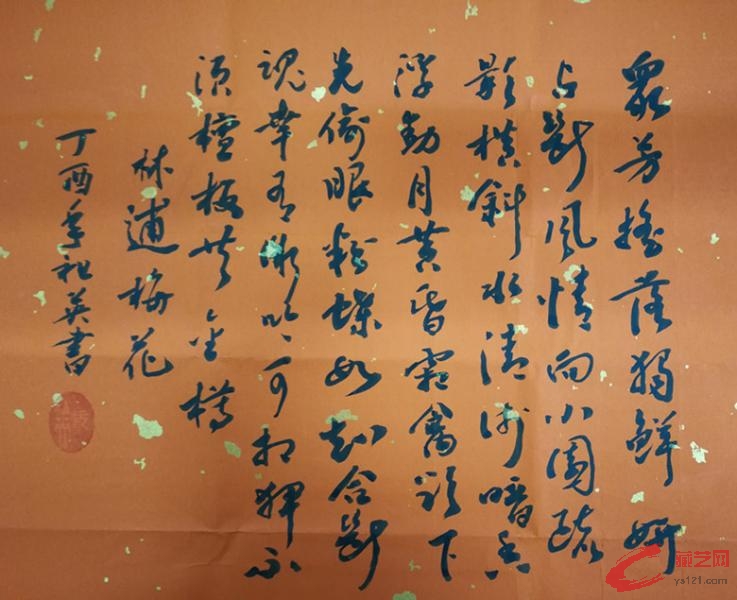 眾芳搖落獨鮮妍
占斷風情向小園疏
影橫斜水清淺暗香
浮動月黃昏霜禽欲下
先偷眼粉蝶如知合斷
魂幸有微吟可相狎不
須檀板共金樽
林逋梅花
丁酉年祖英書
藏艺网
ys121.com